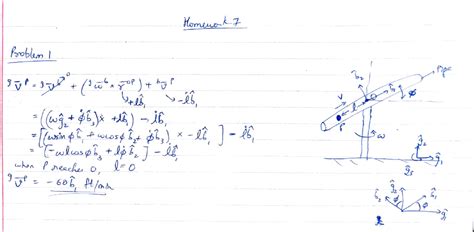 Homework 7
Problem 1
ᵍv̄ᴾ = ᵍv̄⁰ + (ᵍω̄ᵇ × r̄ᴼᴾ) + ᵇv̄ᴾ
+lb̂₁ -l̇b̂₁
= ((ωĝ₂ + φ̇b̂₃) × +lb̂₁) - l̇b̂₁
= [(ωsinφb̂₁ + ωcosφb̂₂ + φ̇b̂₃) × -lb̂₁] - l̇b̂₁
= [-ωlcosφb̂₃ + lφ̇b̂₂] - l̇b̂₁
when P reaches O, l=0
ᵍv̄ᴾ = -60b̂₁ ft/min
Pipe
b̂₂
b̂₁
φ
v
P
ω
ĝ₂
ĝ₁
ĝ₃
b̂₂
ĝ₂
b̂₁
φ
ĝ₁